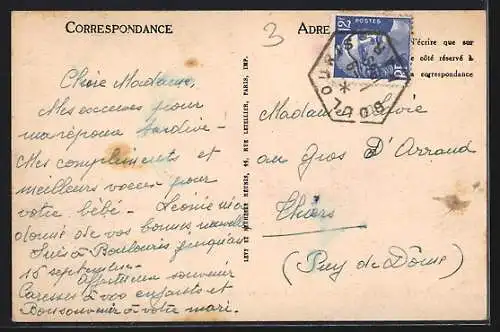 CORRESPONDANCE
ADRE
N'écrire que sur
le côté réservé à
la correspondance
POSTES
12F
BOULOURIS
3
Chère Madame,
Mes excuses pour
ma réponse tardive -
Mes compliments et
meilleurs voeux pour
votre bébé - Léonie m'a
donné de vos bonnes nouvelles
Suis à Boulouris jusqu'au
15 septembre -
Affectueux souvenir
Caresses à vos enfants et
Bon souvenir à votre mari.
LEVY ET NEURDEIN RÉUNIS, 44, RUE LETELLIER, PARIS, IMP.
Madame
au Gros D'Arraud
Thiers
(Puy de Dôme)